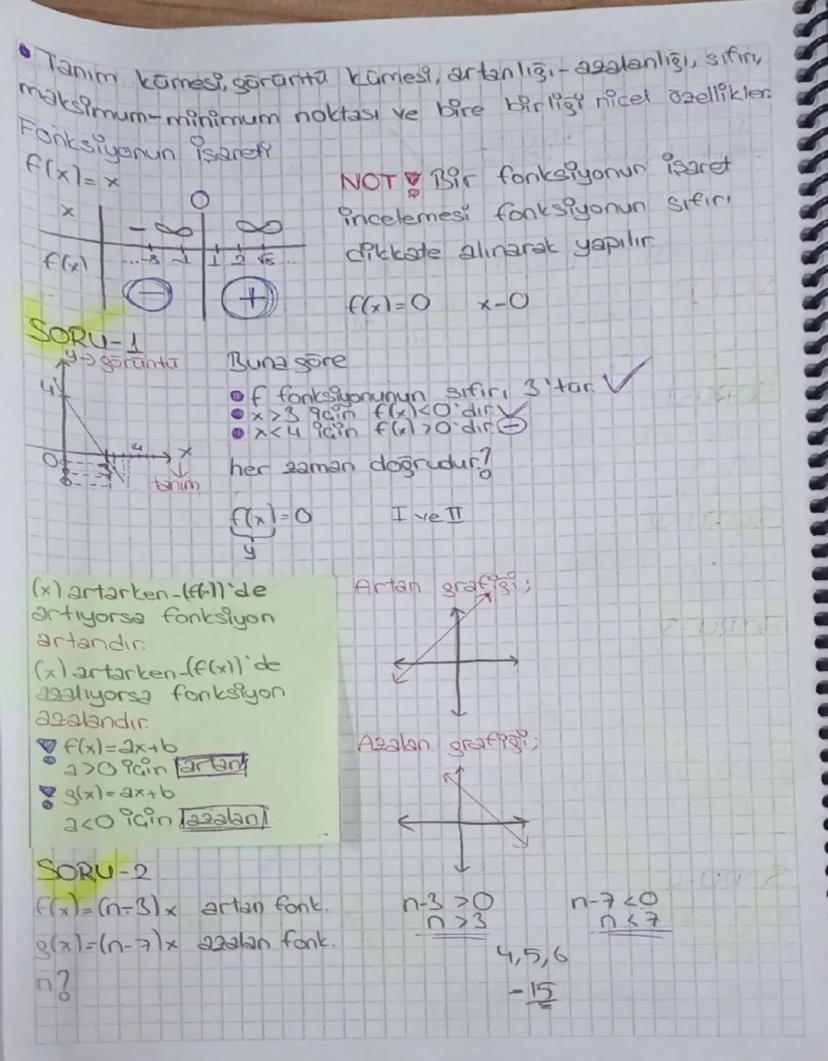 • Tanım kümesi, görüntü kümesi, artanlığı-azalanlığı, sıfırı,
maksimum-minimum noktası ve bire birliği nicel özellikler.
Fonksiyonun işareti
f(x)=x
0
x -∞ ∞
f(x) ...-3 -1 1 2 √5 ...
- +
NOT! Bir fonksiyonun işaret
incelemesi fonksiyonun sıfırı
dikkate alınarak yapılır.
f(x)=0 x-0
SORU-1
y→görüntü
4
0 3 4 x
tanım
Buna göre
• f fonksiyonunun sıfırı 3'tür. ✓
• x>3 için f(x)<0'dır. ✓
• x<4 için f(x)>0'dır. -
her zaman doğrudur?
f(x)=0 I ve II
y
(x) artarken-(f(x))'de
artıyorsa fonksiyon
artandır.
(x) artarken-(f(x))'de
azalıyorsa fonksiyon
azalandır.
! f(x)=ax+b
a>0 için artan
! g(x)=ax+b
a<0 için azalan
Artan grafiği;
Azalan grafiği;
SORU-2
f(x)=(n-3)x artan fonk.
g(x)=(n-7)x azalan fonk.
n?
n-3>0
n>3
n-7<0
n<7
4,5,6
-15